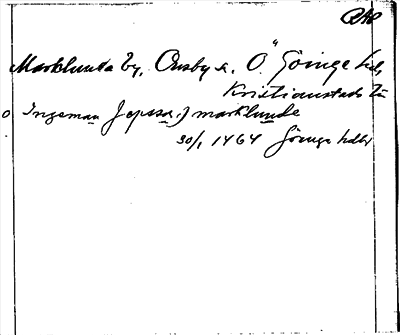 Marklunda by, Örsby s. Ö. Göinge hd,
Kristianstads län
o Ingeman Jepss. i marklunde
30/1 1464 Göinge hdbr